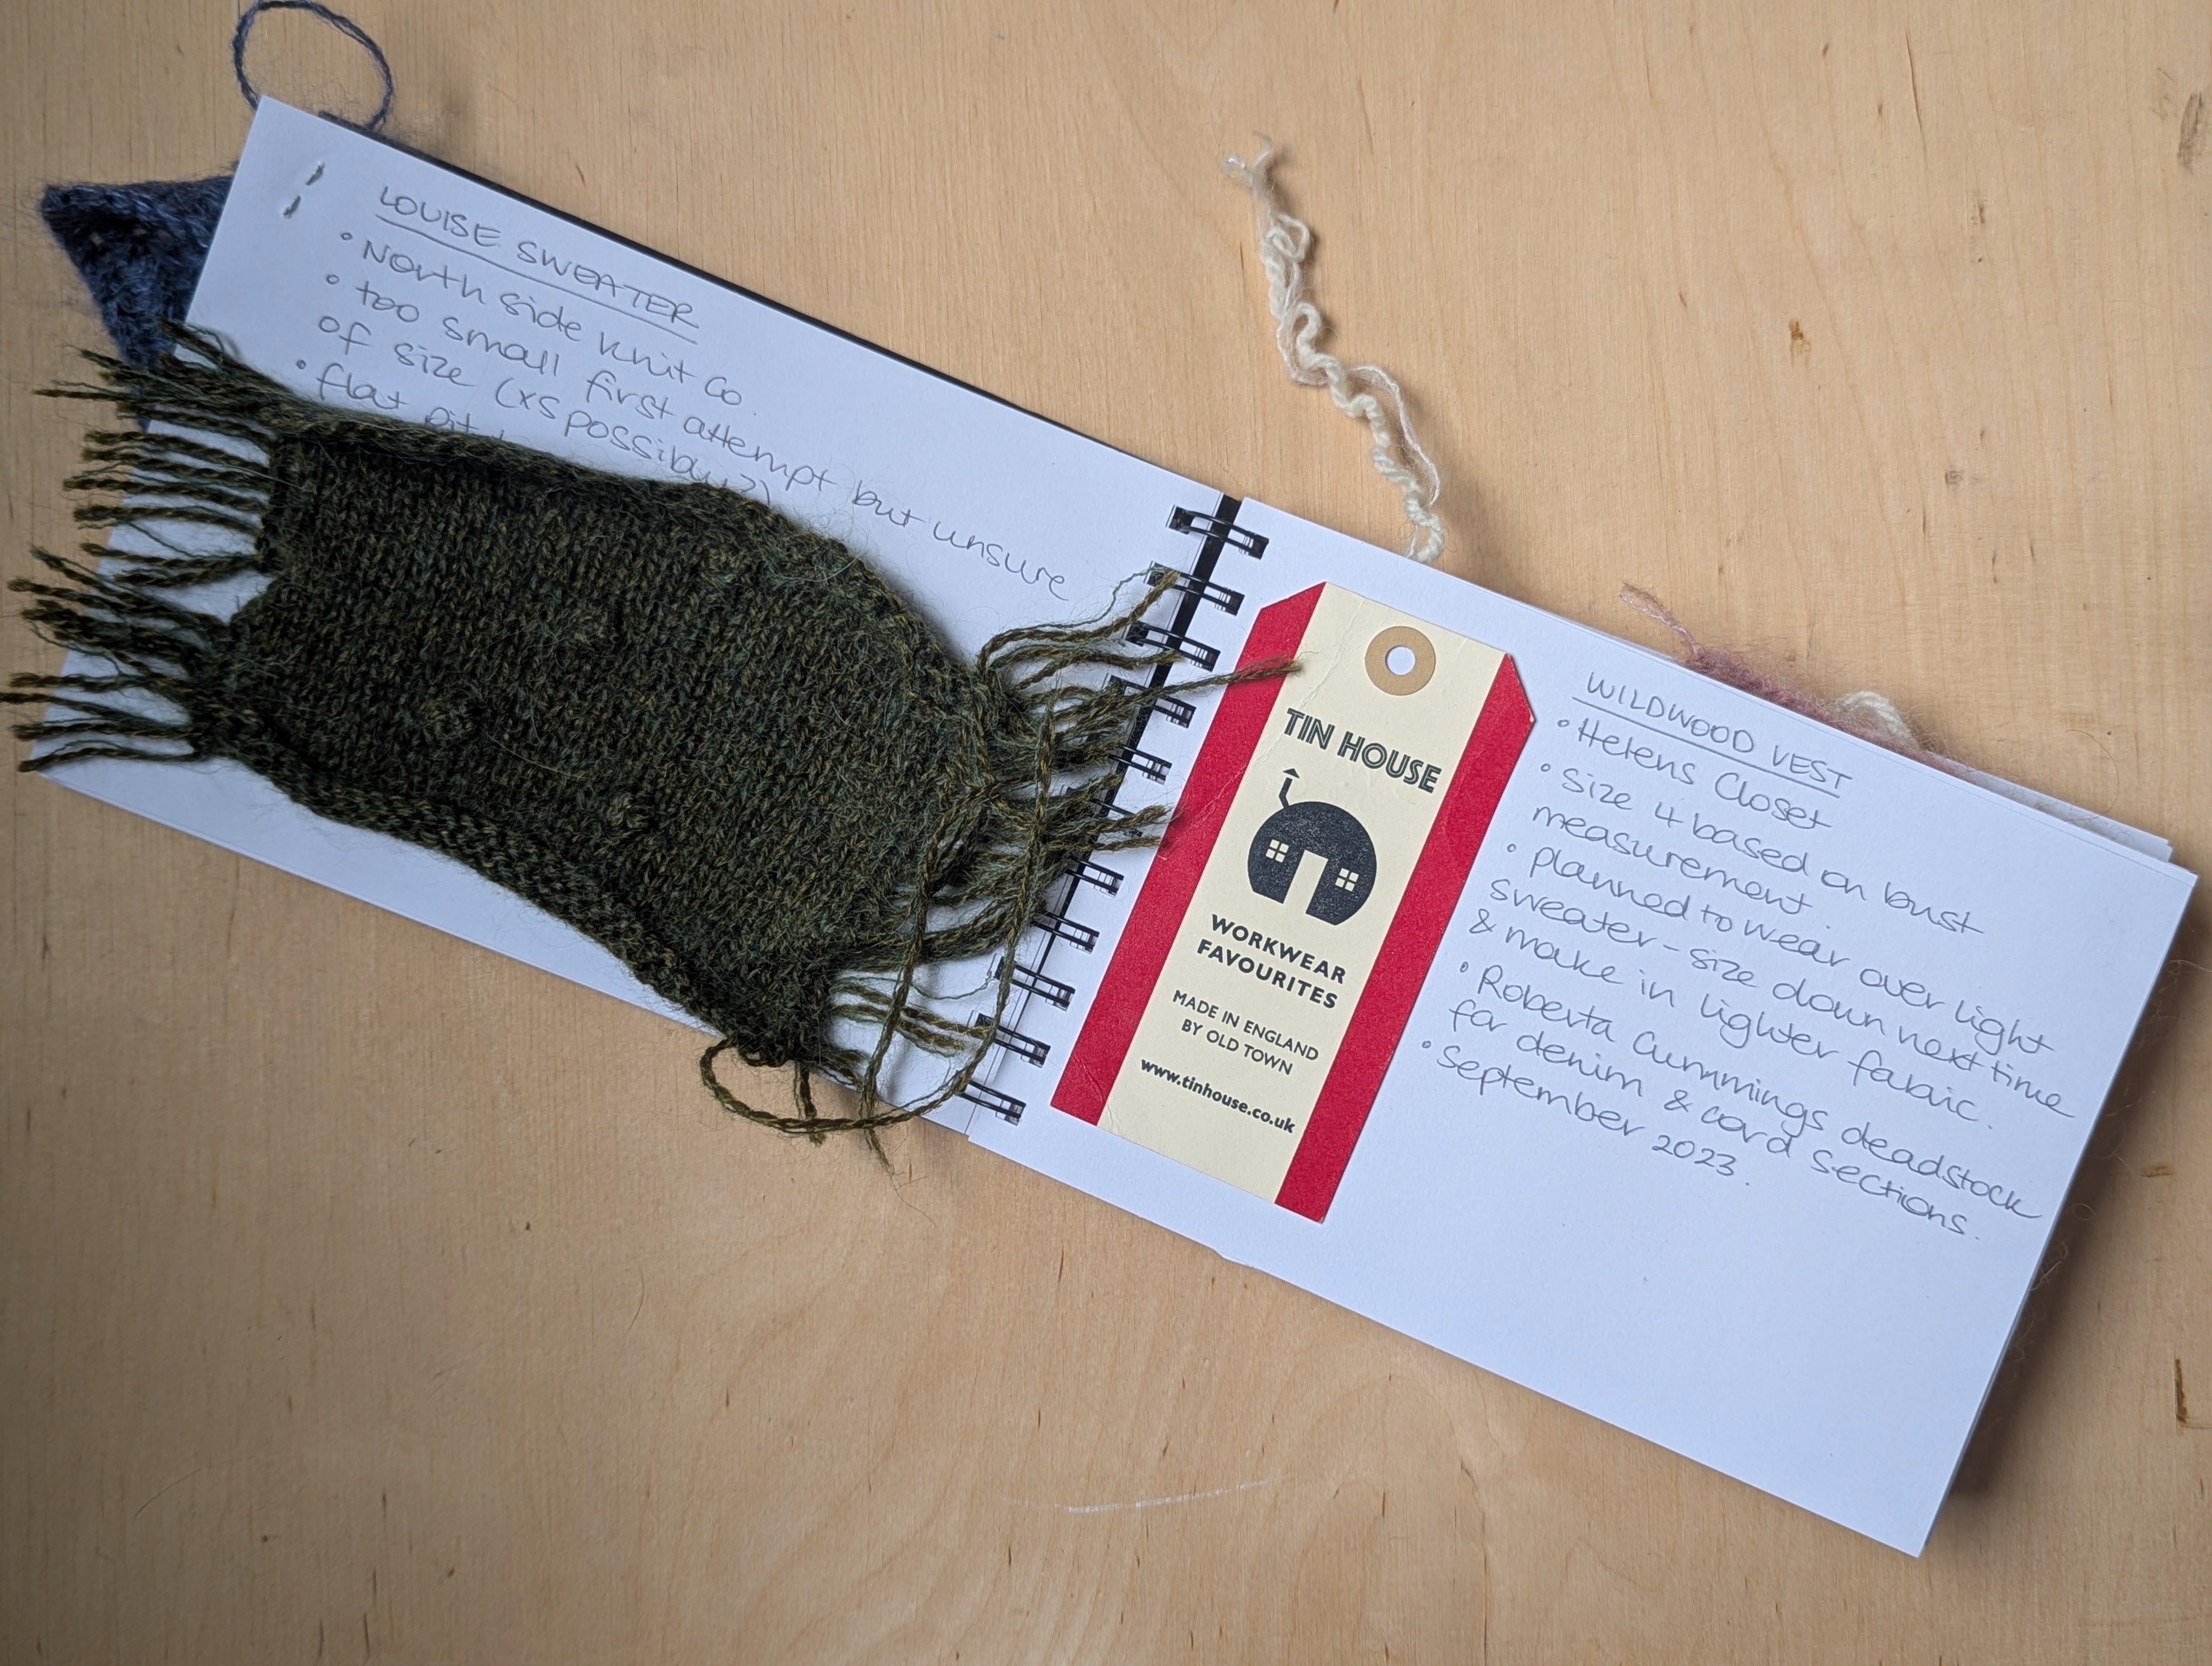 LOUISE SWEATER
• North side knit co.
• too small first attempt but unsure
of size (xs possibly?)
• flat
TIN HOUSE
WORKWEAR
FAVOURITES
MADE IN ENGLAND
BY OLD TOWN
www.tinhouse.co.uk
WILDWOOD VEST
• Helens Closet
• size 4 based on bust
measurement.
• planned to wear over light
sweater - size down next time
& make in lighter fabric.
• Roberta Cummings deadstock
for denim & cord sections.
• September 2023.